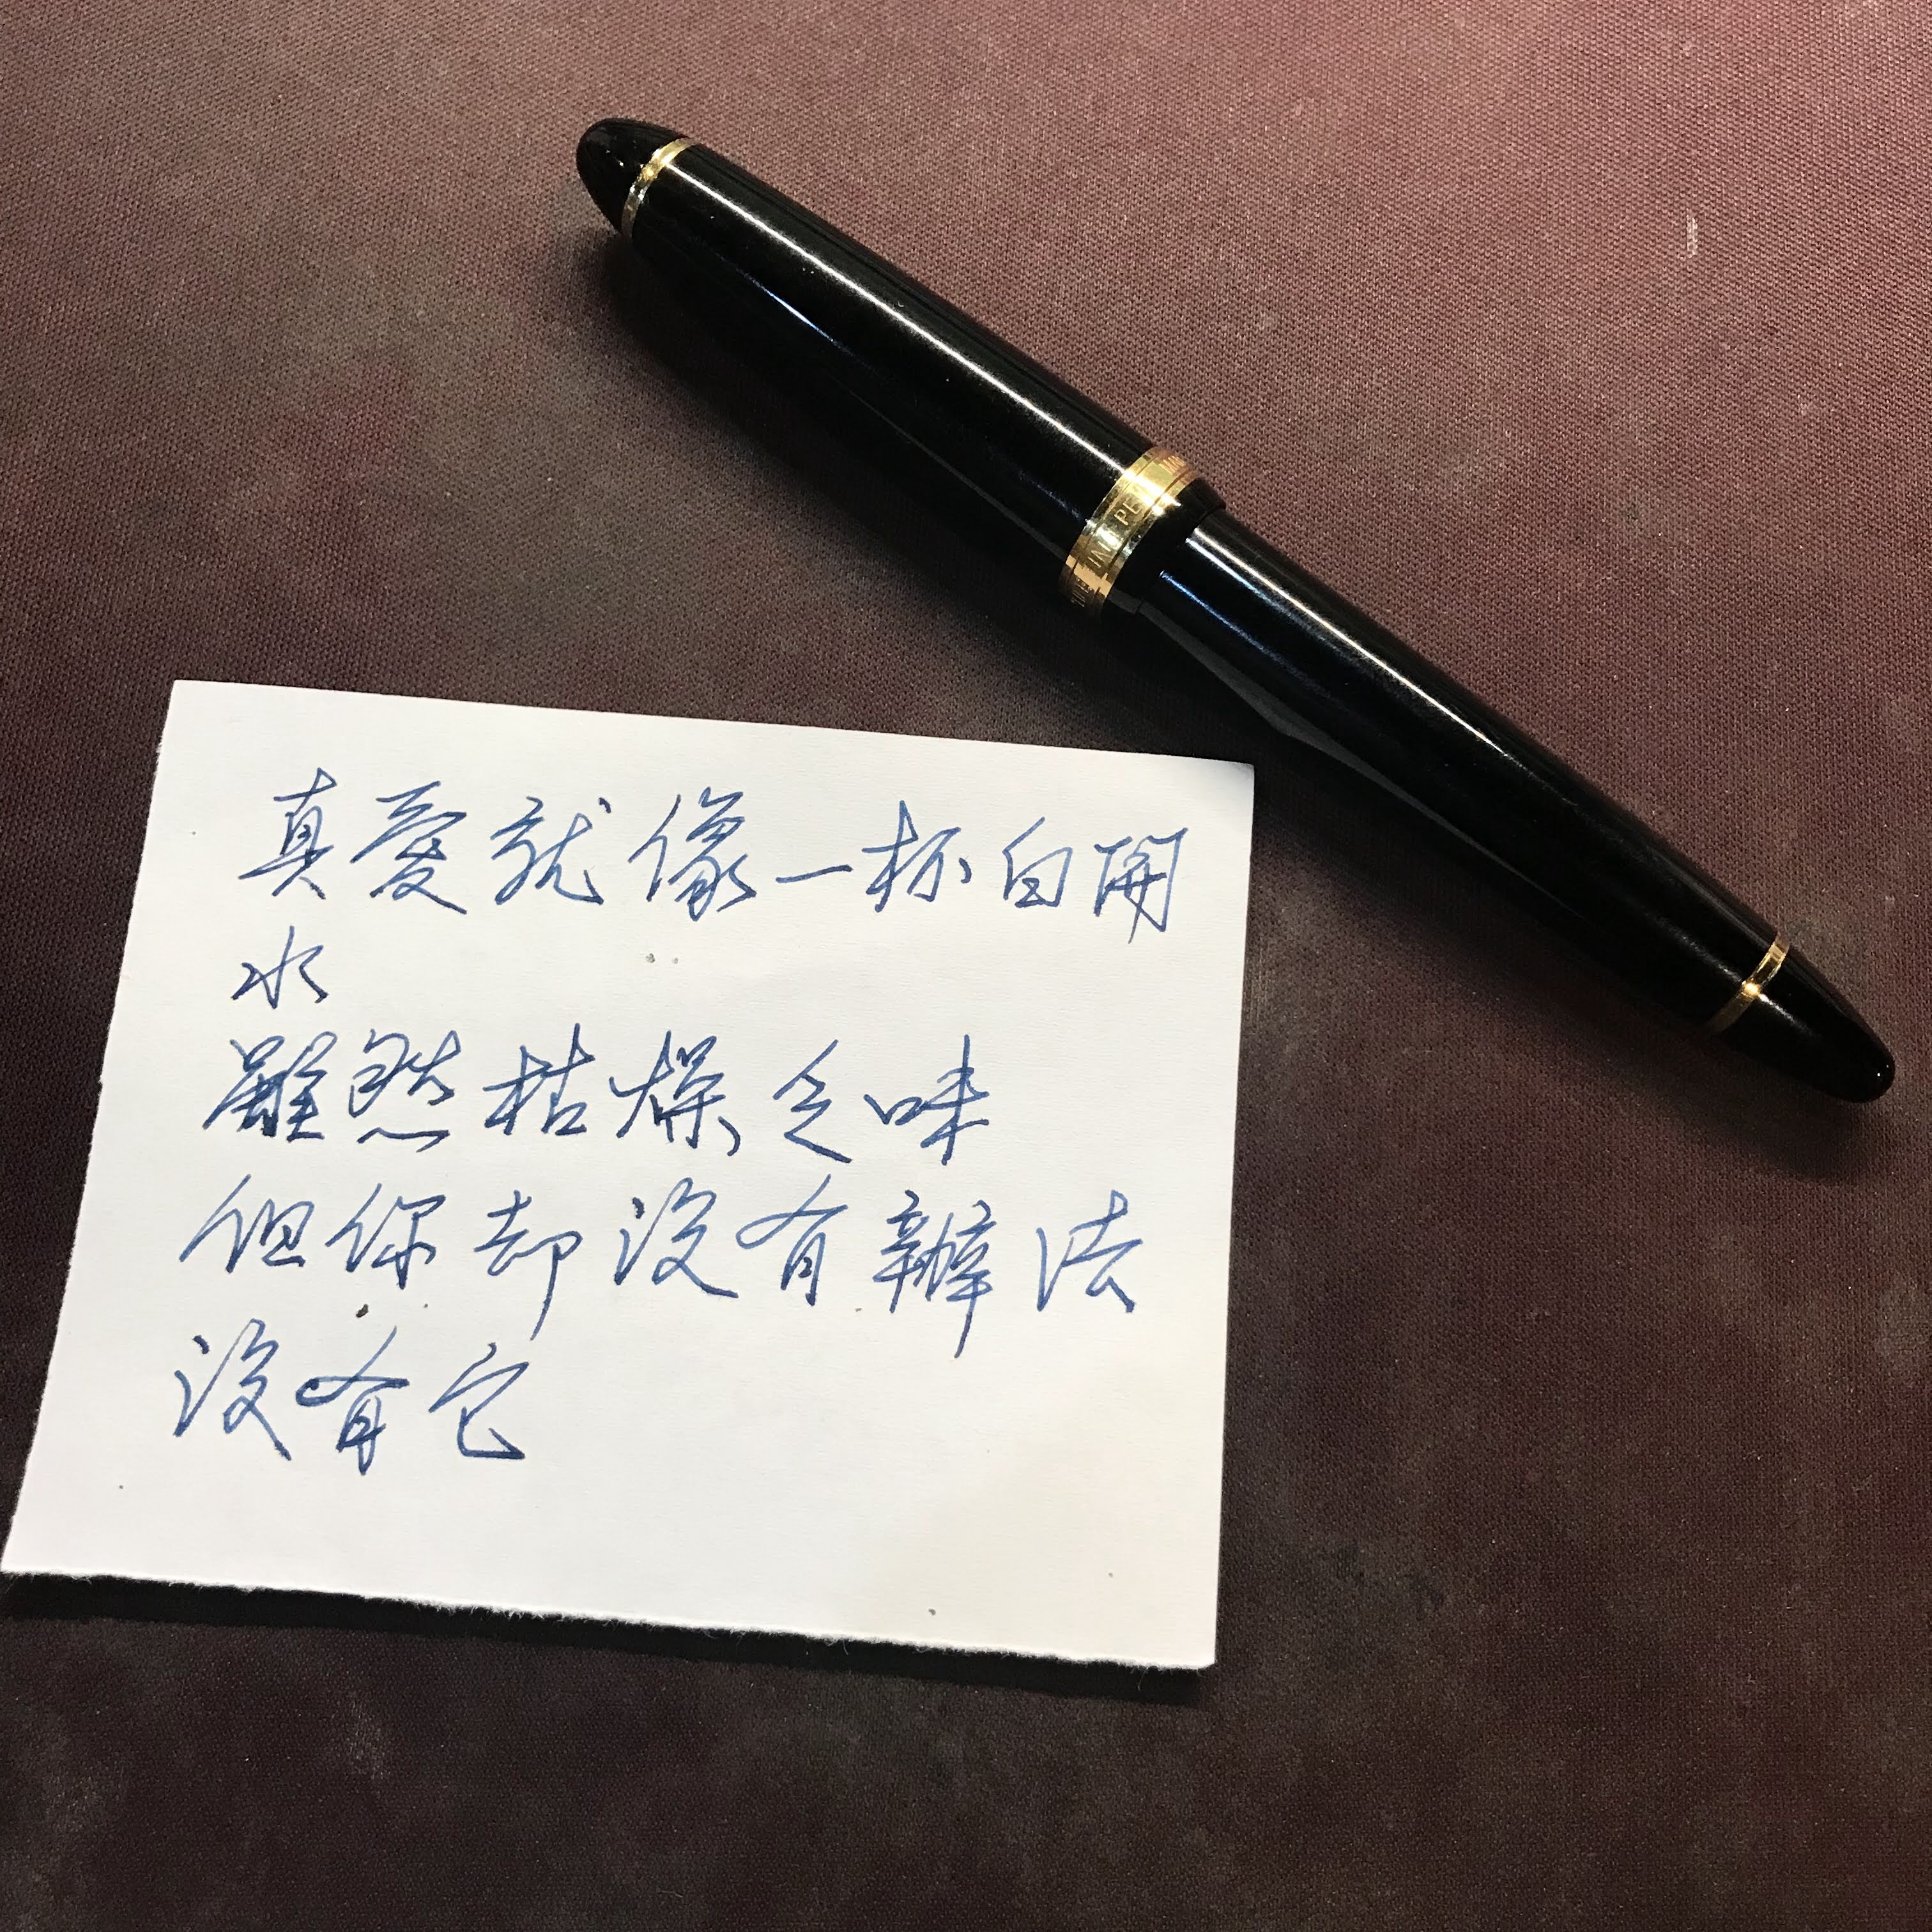 真愛就像一杯白開
水
雖然枯燥乏味
但你却沒有辦法
沒有它